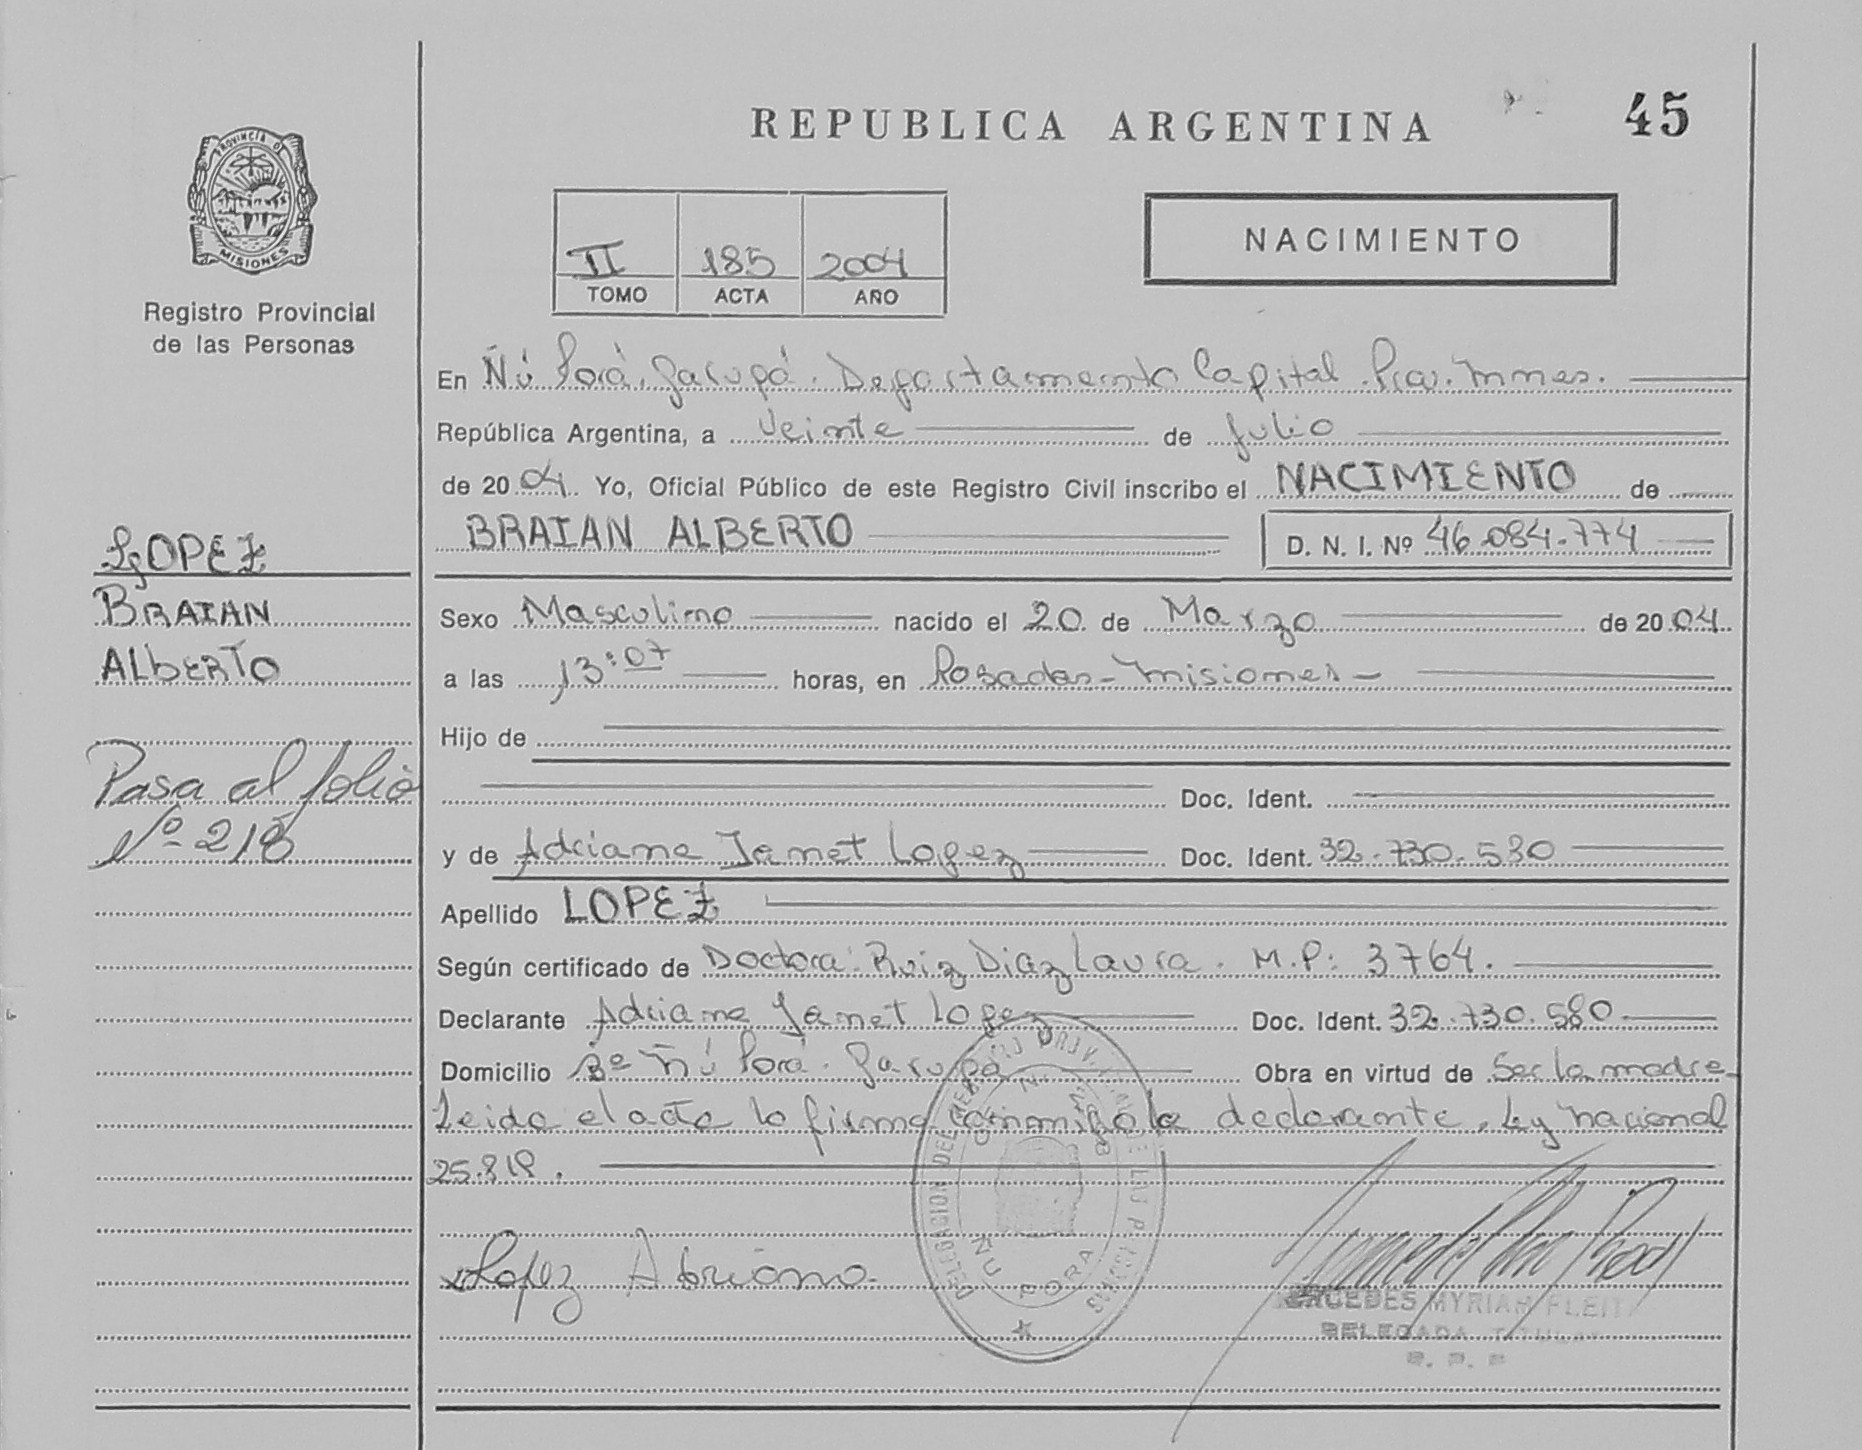 REPUBLICA ARGENTINA
45
PROVINCIA DE
MISIONES
Registro Provincial
de las Personas
II 185 2004
TOMO ACTA AÑO
NACIMIENTO
En Ñú Porá, Garupá. Departamento Capital. Prov. Mnes.
República Argentina, a veinte de Julio
de 2004. Yo, Oficial Público de este Registro Civil inscribo el NACIMIENTO de
BRAIAN ALBERTO D. N. I. Nº 46.084.774
LOPEZ
BRAIAN
ALBERTO
Sexo Masculino nacido el 20 de Marzo de 2004
a las 13:07 horas, en Posadas - Misiones -
Hijo de
Doc. Ident.
Pasa al folio
Nº 218
y de Adriana Janet Lopez Doc. Ident. 32.730.580
Apellido LOPEZ
Según certificado de Doctora: Ruiz Diaz Laura. M.P: 3764.
Declarante Adriana Janet Lopez Doc. Ident. 32.730.580
Domicilio Bº Ñú Porá. Garupá Obra en virtud de Ser la madre
Leida el acta lo firma conmigo la declarante. Ley nacional
25.819.
Lopez Adriana
DELEGACION DEL REGISTRO PROV. DE LAS PERSONAS
ÑU PORA
MERCEDES MYRIAM FLEITA
DELEGADA TITULAR
R. P. P